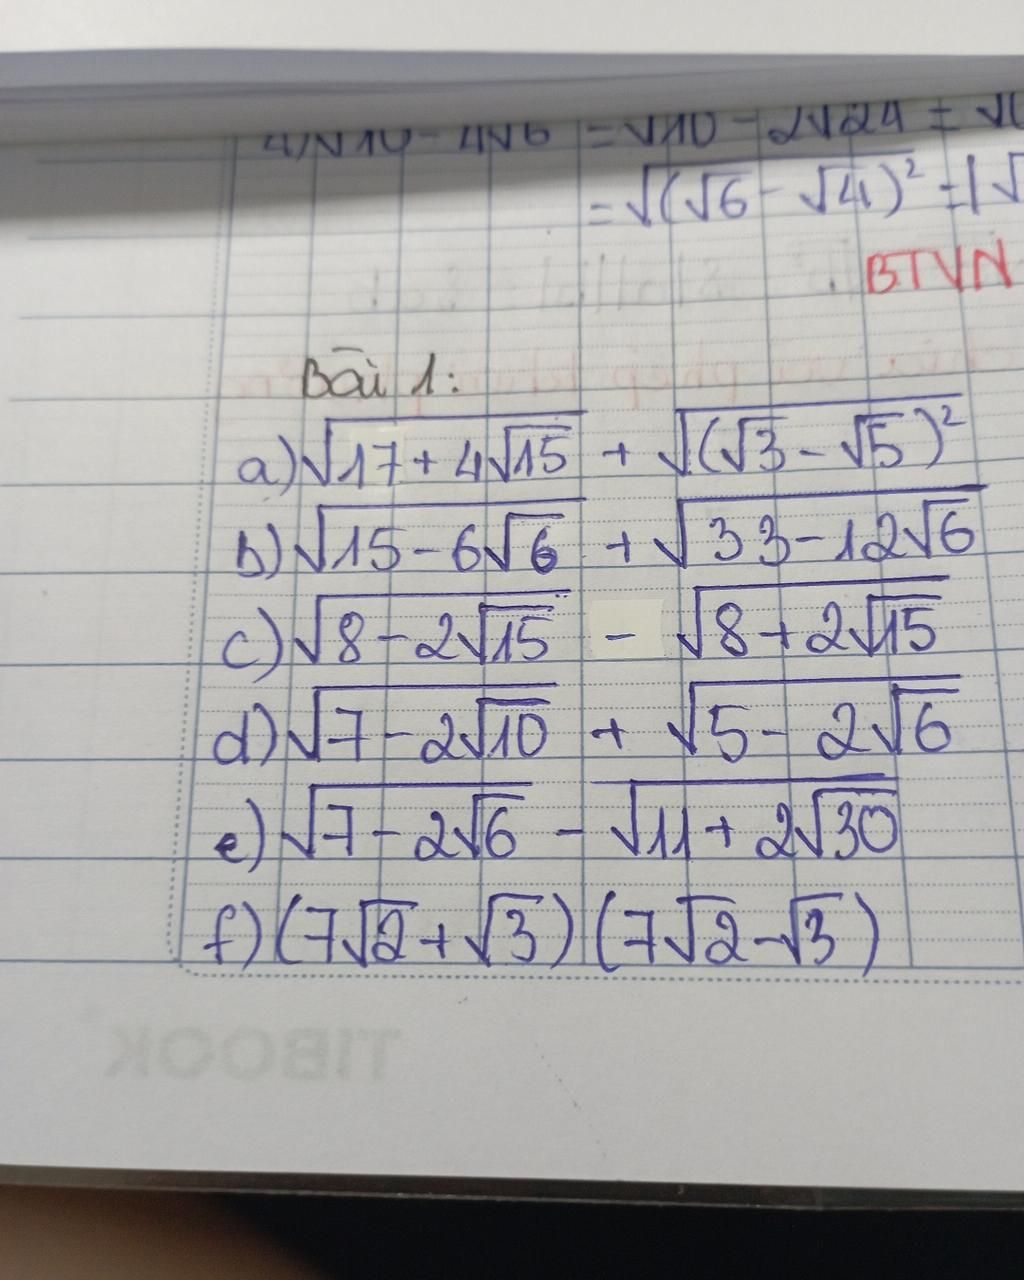 4) √10 - 4√6 = √10 - 2√24 = √
= √(√6 - √4)² = |√
BTVN
Bài 1:
a) √17 + 4√15 + √(√3 - √5)²
b) √15 - 6√6 + √33 - 12√6
c) √8 - 2√15 - √8 + 2√15
d) √7 - 2√10 + √5 - 2√6
e) √7 - 2√6 - √11 + 2√30
f) (7√2 + √3) (7√2 - √3)